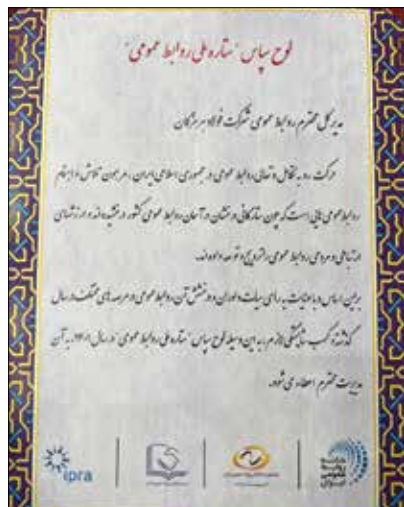 لوح سپاس "ستاره ملی روابط عمومی"
مدیر کل محترم روابط عمومی شرکت فولاد هرمزگان
حرکت رو به تکامل و تعالی روابط عمومی در جمهوری اسلامی ایران، مرهون تلاش و اهتمام
روابط عمومی هایی است که چون ستارگانی درخشان در آسمان روابط عمومی کشور درخشیده اند و ارزشهای
ارتباطی و مردمی روابط عمومی را ترویج و توسعه داده اند.
بر این اساس و با عنایت به رای هیات داوران و درخشش آن روابط عمومی در عرصه های مختلف در سال
گذشته و کسب شایستگی لازم، به این وسیله لوح سپاس "ستاره ملی روابط عمومی" در سال به آن
مدیریت محترم اعطاء می شود.
ipra
خانه
روابط
عمومی
ایران